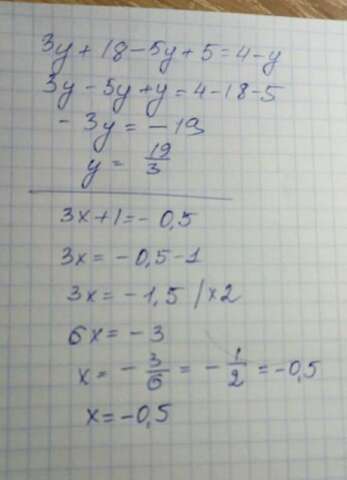 3y + 18 - 5y + 5 = 4 - y
3y - 5y + y = 4 - 18 - 5
- 3y = - 19
y = 19/3
3x + 1 = - 0,5
3x = - 0,5 - 1
3x = - 1,5 / x 2
6x = - 3
x = - 3/6 = - 1/2 = - 0,5
x = - 0,5